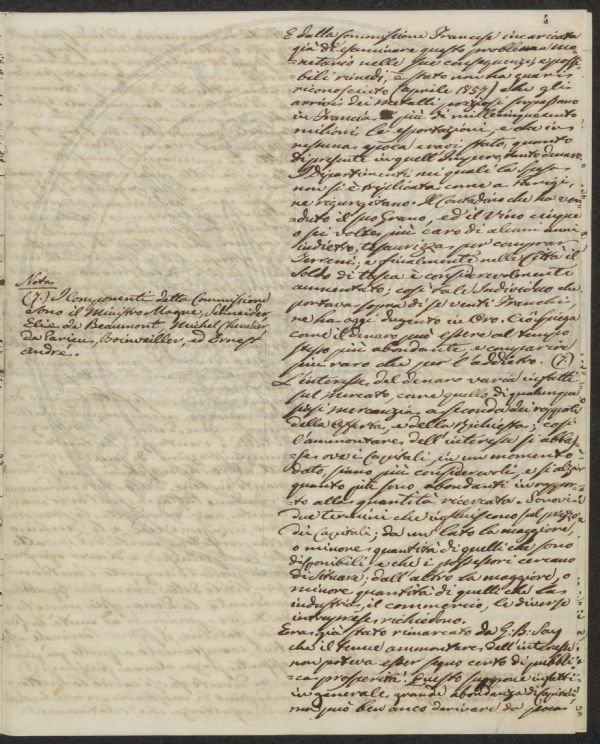 E dalla Commissione Francese incaricata
già di esaminare questo problema mo-
=netario nelle sue conseguenze, e possi-
=bili rimedi, è stato non ha guari
riconosciuto (aprile 1857) che gli
arrivi dei metalli preziosi sorpassano
in Francia più di millecinquecento
milioni le esportazioni, e che in
nessuna epoca eravi stato, quanto
di presente in quell'Impero, tanto denaro.
I dipartimenti nei quali la spesa
non si è triplicata come a Parigi,
ne rigurgitano. Il Contadino che ha ven-
=duto il suo Grano, ed il Vino cinque
o sei volte più caro di alcuni anni
indietro, tesaurizza per comprar
Terreni; e finalmente nelle Città il
Soldo di tasca è considerevolmente
aumentato; così tale Individuo che
portava sopra di se venti Franchi,
ne ha oggi dugento in Oro. Ciò spiega
come il denaro può essere al tempo
stesso più abondante, e comparire
più raro che per l'addietro. (7.)
L'interesse del denaro varia infatti
sul mercato, come quello di qualunque
siasi mercanzia a seconda dei rapporti
della Offerta, e della Richiesta; così
l'ammontare dell'interesse si abbas-
=sa ove i Capitali in un momento
dato, siano più considerevoli, e si alza
quanto più sono abondanti in rappor-
=to alla quantità ricercata. Sonovi
due termini che influiscono sul prezzo
dei Capitali; da un lato la maggiore,
o minore quantità di quelli che sono
disponibili e che i possessori cercano
di situare; dall'altro la maggiore, o
minore quantità di quelli che la
industria, il commercio, le diverse
intraprese richiedono.
Eragià stato rimarcato da G. B. Say
che il tenue ammontare dell'interesse
non poteva esser segno certo di pubbli-
=ca prosperità. Questo suppone infatti
in generale grande abondanza di Capitali,
ma può ben anco derivare da poca
Nota
(7.) I Componenti detta Commissione
sono il Ministro Magne, Schneider
Elie de Beaumont, Michel Chevalier,
de Parieu, Boinvilliers, ed Ernest
André.